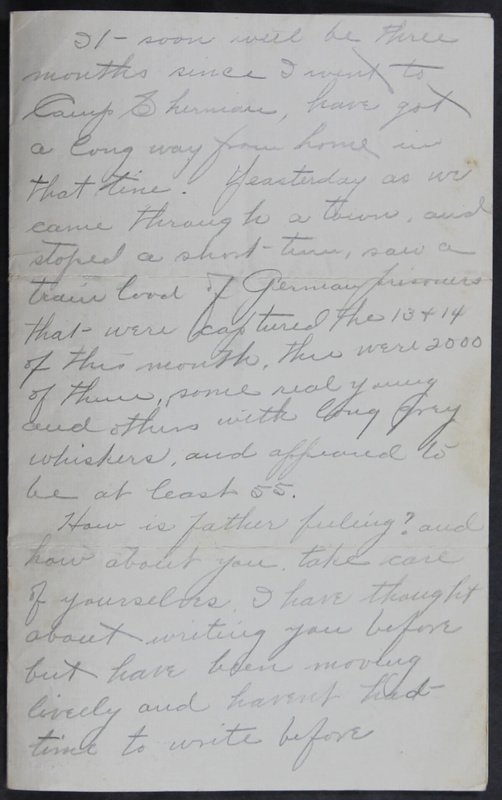 It soon will be three
months since I went to
Camp Sherman, have got
a long way from home in
that time. Yeasterday as we
came through a town, and
stoped a short time, saw a
train load of German prisoners
that were captured the 13 & 14
of this month, there were 2000
of them, some real young
and others with long grey
whiskers, and appeared to
be at least 55.
How is father feeling? and
how about you. take care
of yourselves. I have thought
about writing you before
but have been moving
lively and havent had
time to write before